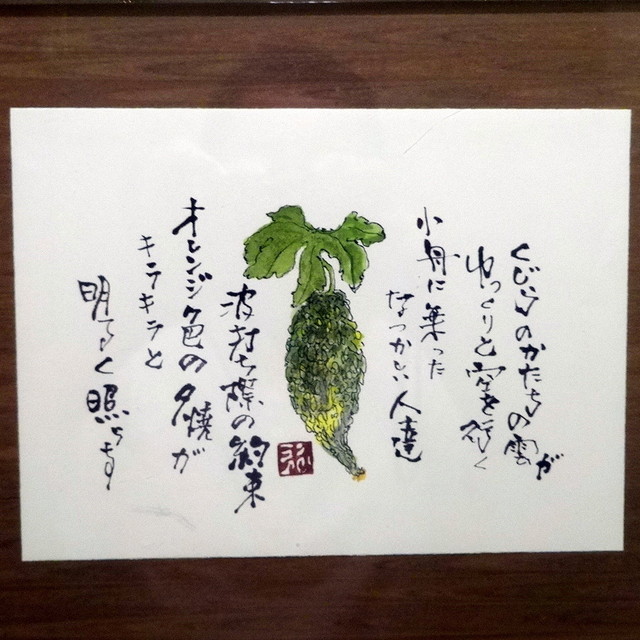 くじらのかたちの雲が
ゆっくりと空を行く
小舟に乗った
なつかしい人達
波打ち際の約束
オレンジ色の夕焼が
キラキラと
明るく照らす